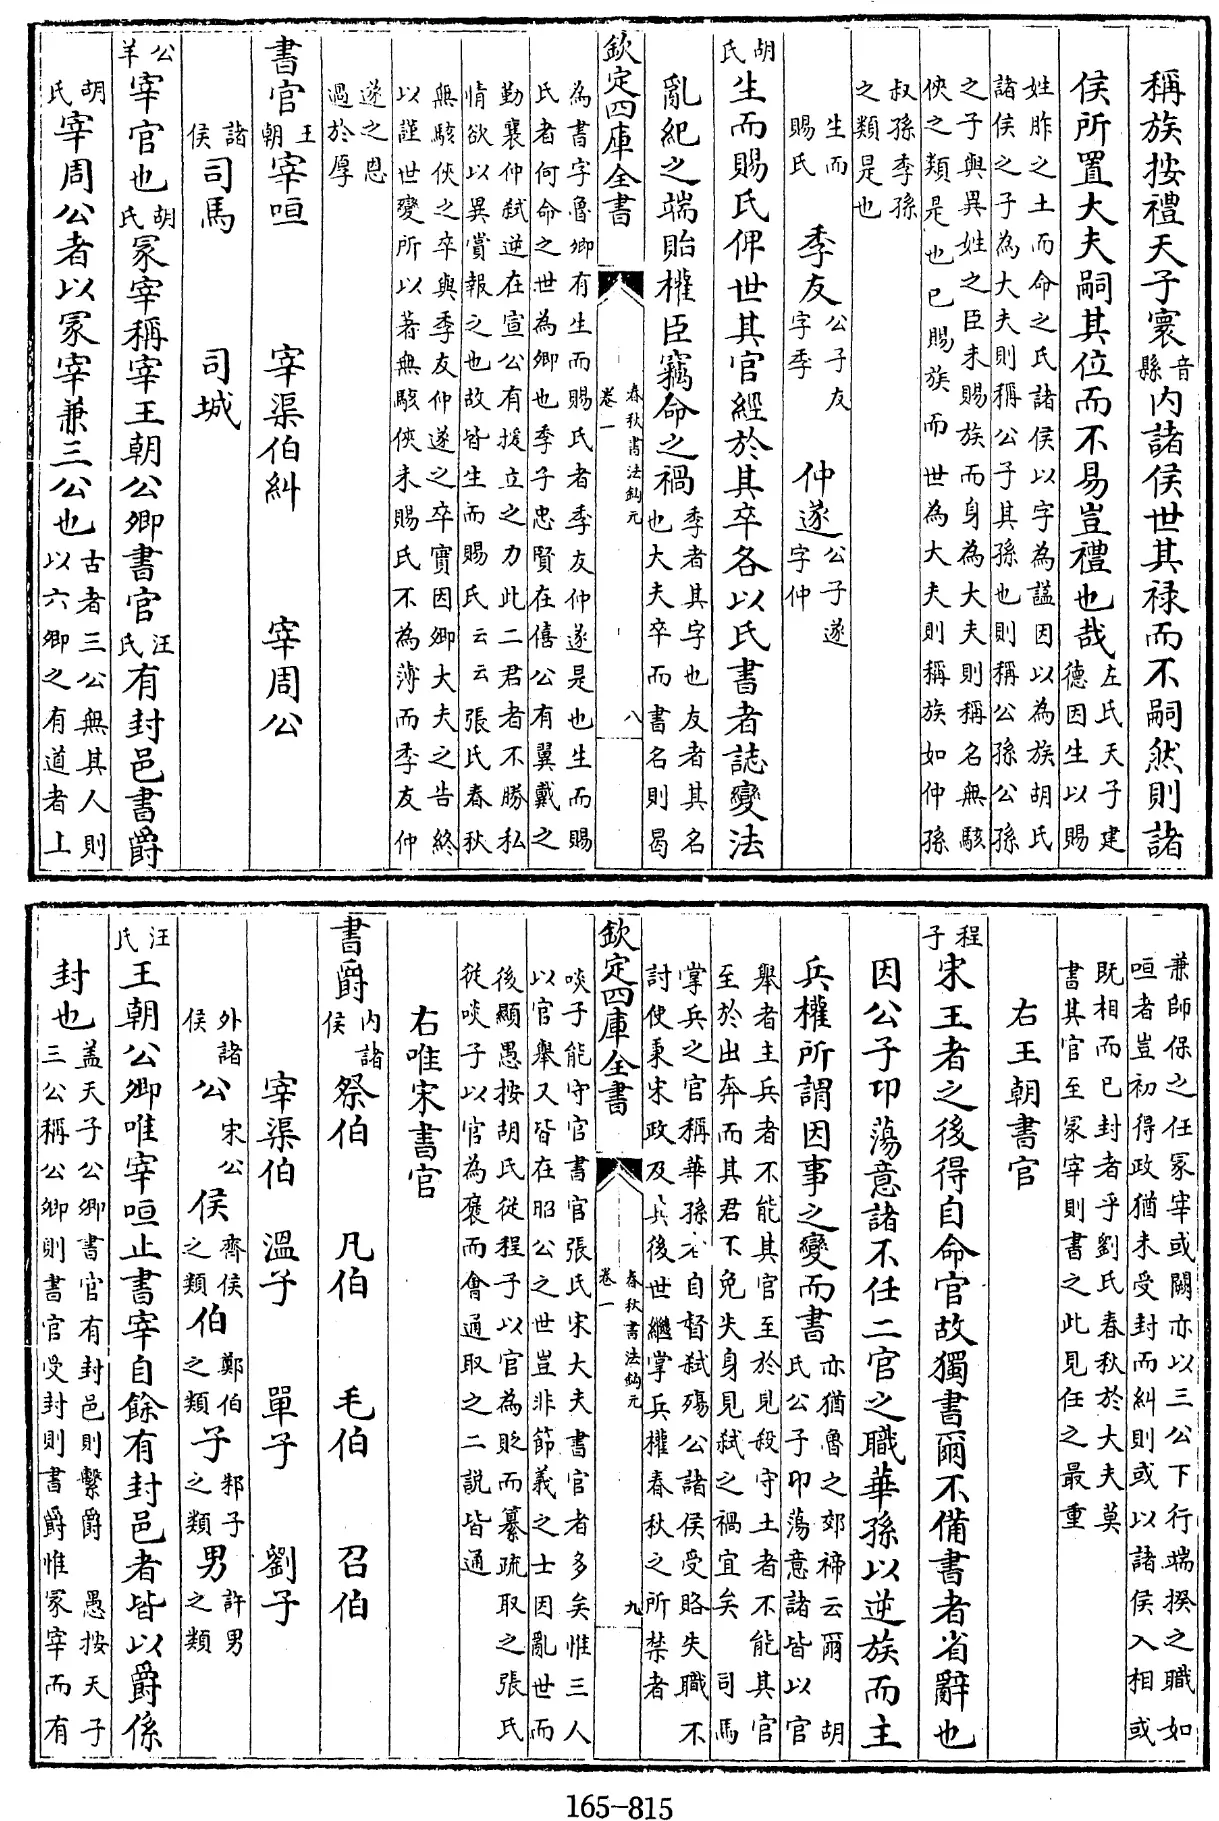 稱族按禮天子寰音縣内諸侯世其禄而不嗣然則諸
侯所置大夫嗣其位而不易豈禮也哉左氏天子建德因生以賜
姓胙之土而命之氏諸侯以字為諡因以為族胡氏
諸侯之子為大夫則稱公子其孫也則稱公孫公孫
之子與異姓之臣未賜族而身為大夫則稱名無駭
俠之類是也已賜族而世為大夫則稱族如仲孫
叔孫季孫
之類是也
生而賜氏 季友公子友字季 仲遂公子遂字仲
胡氏生而賜氏俾世其官經於其卒各以氏書者誌變法
亂紀之端貽權臣竊命之禍季者其字也友者其名也大夫卒而書名則曷
欽定四庫全書 春秋書法鈎元 卷一 八
為書字魯卿有生而賜氏者季友仲遂是也生而賜
氏者何命之世為卿也季子忠賢在僖公有翼戴之
勤襄仲弑逆在宣公有援立之力此二君者不勝私
情欲以異賞報之也故皆生而賜氏云云張氏春秋
無駭俠之卒與季友仲遂之卒實因卿大夫之告終
以謹世變所以著無駭俠未賜氏不為薄而季友仲
遂之恩
過於厚
書官王朝宰咺 宰渠伯糾 宰周公
諸侯司馬 司城
公羊宰官也胡氏冢宰稱宰王朝公卿書官汪氏有封邑書爵
胡氏宰周公者以冢宰兼三公也古者三公無其人則以六卿之有道者上
兼師保之任冢宰或闕亦以三公下行端揆之職如
咺者豈初得政猶未受封而糾則或以諸侯入相或
既相而已封者乎劉氏春秋於大夫莫
書其官至冢宰則書之此見任之最重
右王朝書官
程子宋王者之後得自命官故獨書爾不備書者省辭也
因公子卬蕩意諸不任二官之職華孫以逆族而主
兵權所謂因事之變而書亦猶魯之郊禘云爾胡氏公子卬蕩意諸皆以官
舉者主兵者不能其官至於見殺守土者不能其官
至於出奔而其君不免失身見弑之禍宜矣司馬
掌兵之官稱華孫者自督弑殤公諸侯受賂失職不
討使秉宋政及其後世繼掌兵權春秋之所禁者
欽定四庫全書 春秋書法鈎元 卷一 九
啖子能守官書官張氏宋大夫書官者多矣惟三人
以官舉又皆在昭公之世豈非節義之士因亂世而
後顯愚按胡氏從程子以官為貶而纂疏取之張氏
從啖子以官為褒而會通取之二說皆通
右唯宋書官
書爵内諸侯祭伯 凡伯 毛伯 召伯
宰渠伯 溫子 單子 劉子
外諸侯公宋公侯齊侯之類伯鄭伯之類子邾子之類男許男之類
汪氏王朝公卿唯宰咺止書宰自餘有封邑者皆以爵係
封也蓋天子公卿書官有封邑則繫爵愚按天子三公稱公卿則書官受封則書爵惟冢宰而有
165-815